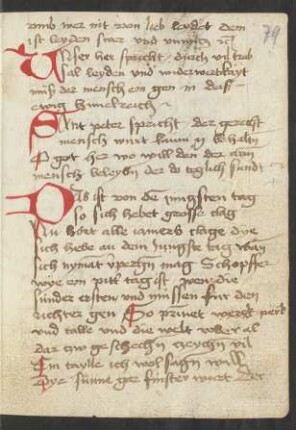 vmb wer nit von lieb leydet dem
ist leyden swer vnd
Vnser her spricht durch vil trub
sal leyden vnd widerwertikayt
mus der mensch ein gen in das
ewig himelreich
Sant peter spricht der gerecht
mensch wirt kaum behalten
O got her wo will den der arm
mensch beleyben der do teglich sundt
Das ist von dem jungsten tag
so sich hebet grosse clag
Nu hort alle iamers clage dye
sich hebe an dem jungste tag wan
sich nymant mag Schopffer
wye ein pitt tag ist wen die
sunder ersten vnd mussen fur den
richter gen So perk
vnd talle vnd die welt vber al
dar zw geschechn zeychn vil
Ein taylle ich wol sagn will
Dye sunne gar finster wirt Der
79